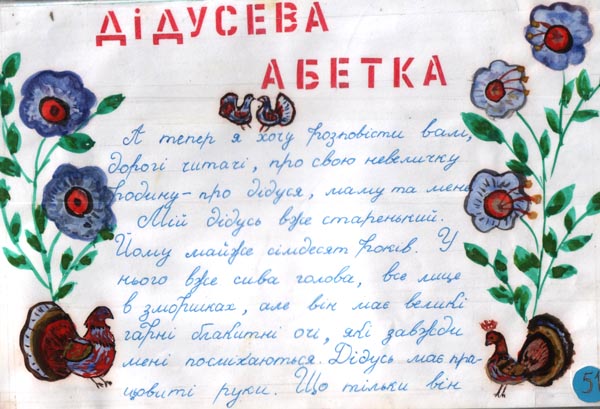 ДІДУСЕВА
АБЕТКА
А тепер я хочу розповісти вам,
дорогі читачі, про свою невеличку
родину - про дідуся, маму та мене.
Мій дідусь вже старенький.
Йому майже сімдесят років. У
нього вже сива голова, все лице
в зморшках, але він має великі
гарні блакитні очі, які завжди
мені посміхаються. Дідусь має пра-
цьовиті руки. Що тільки він